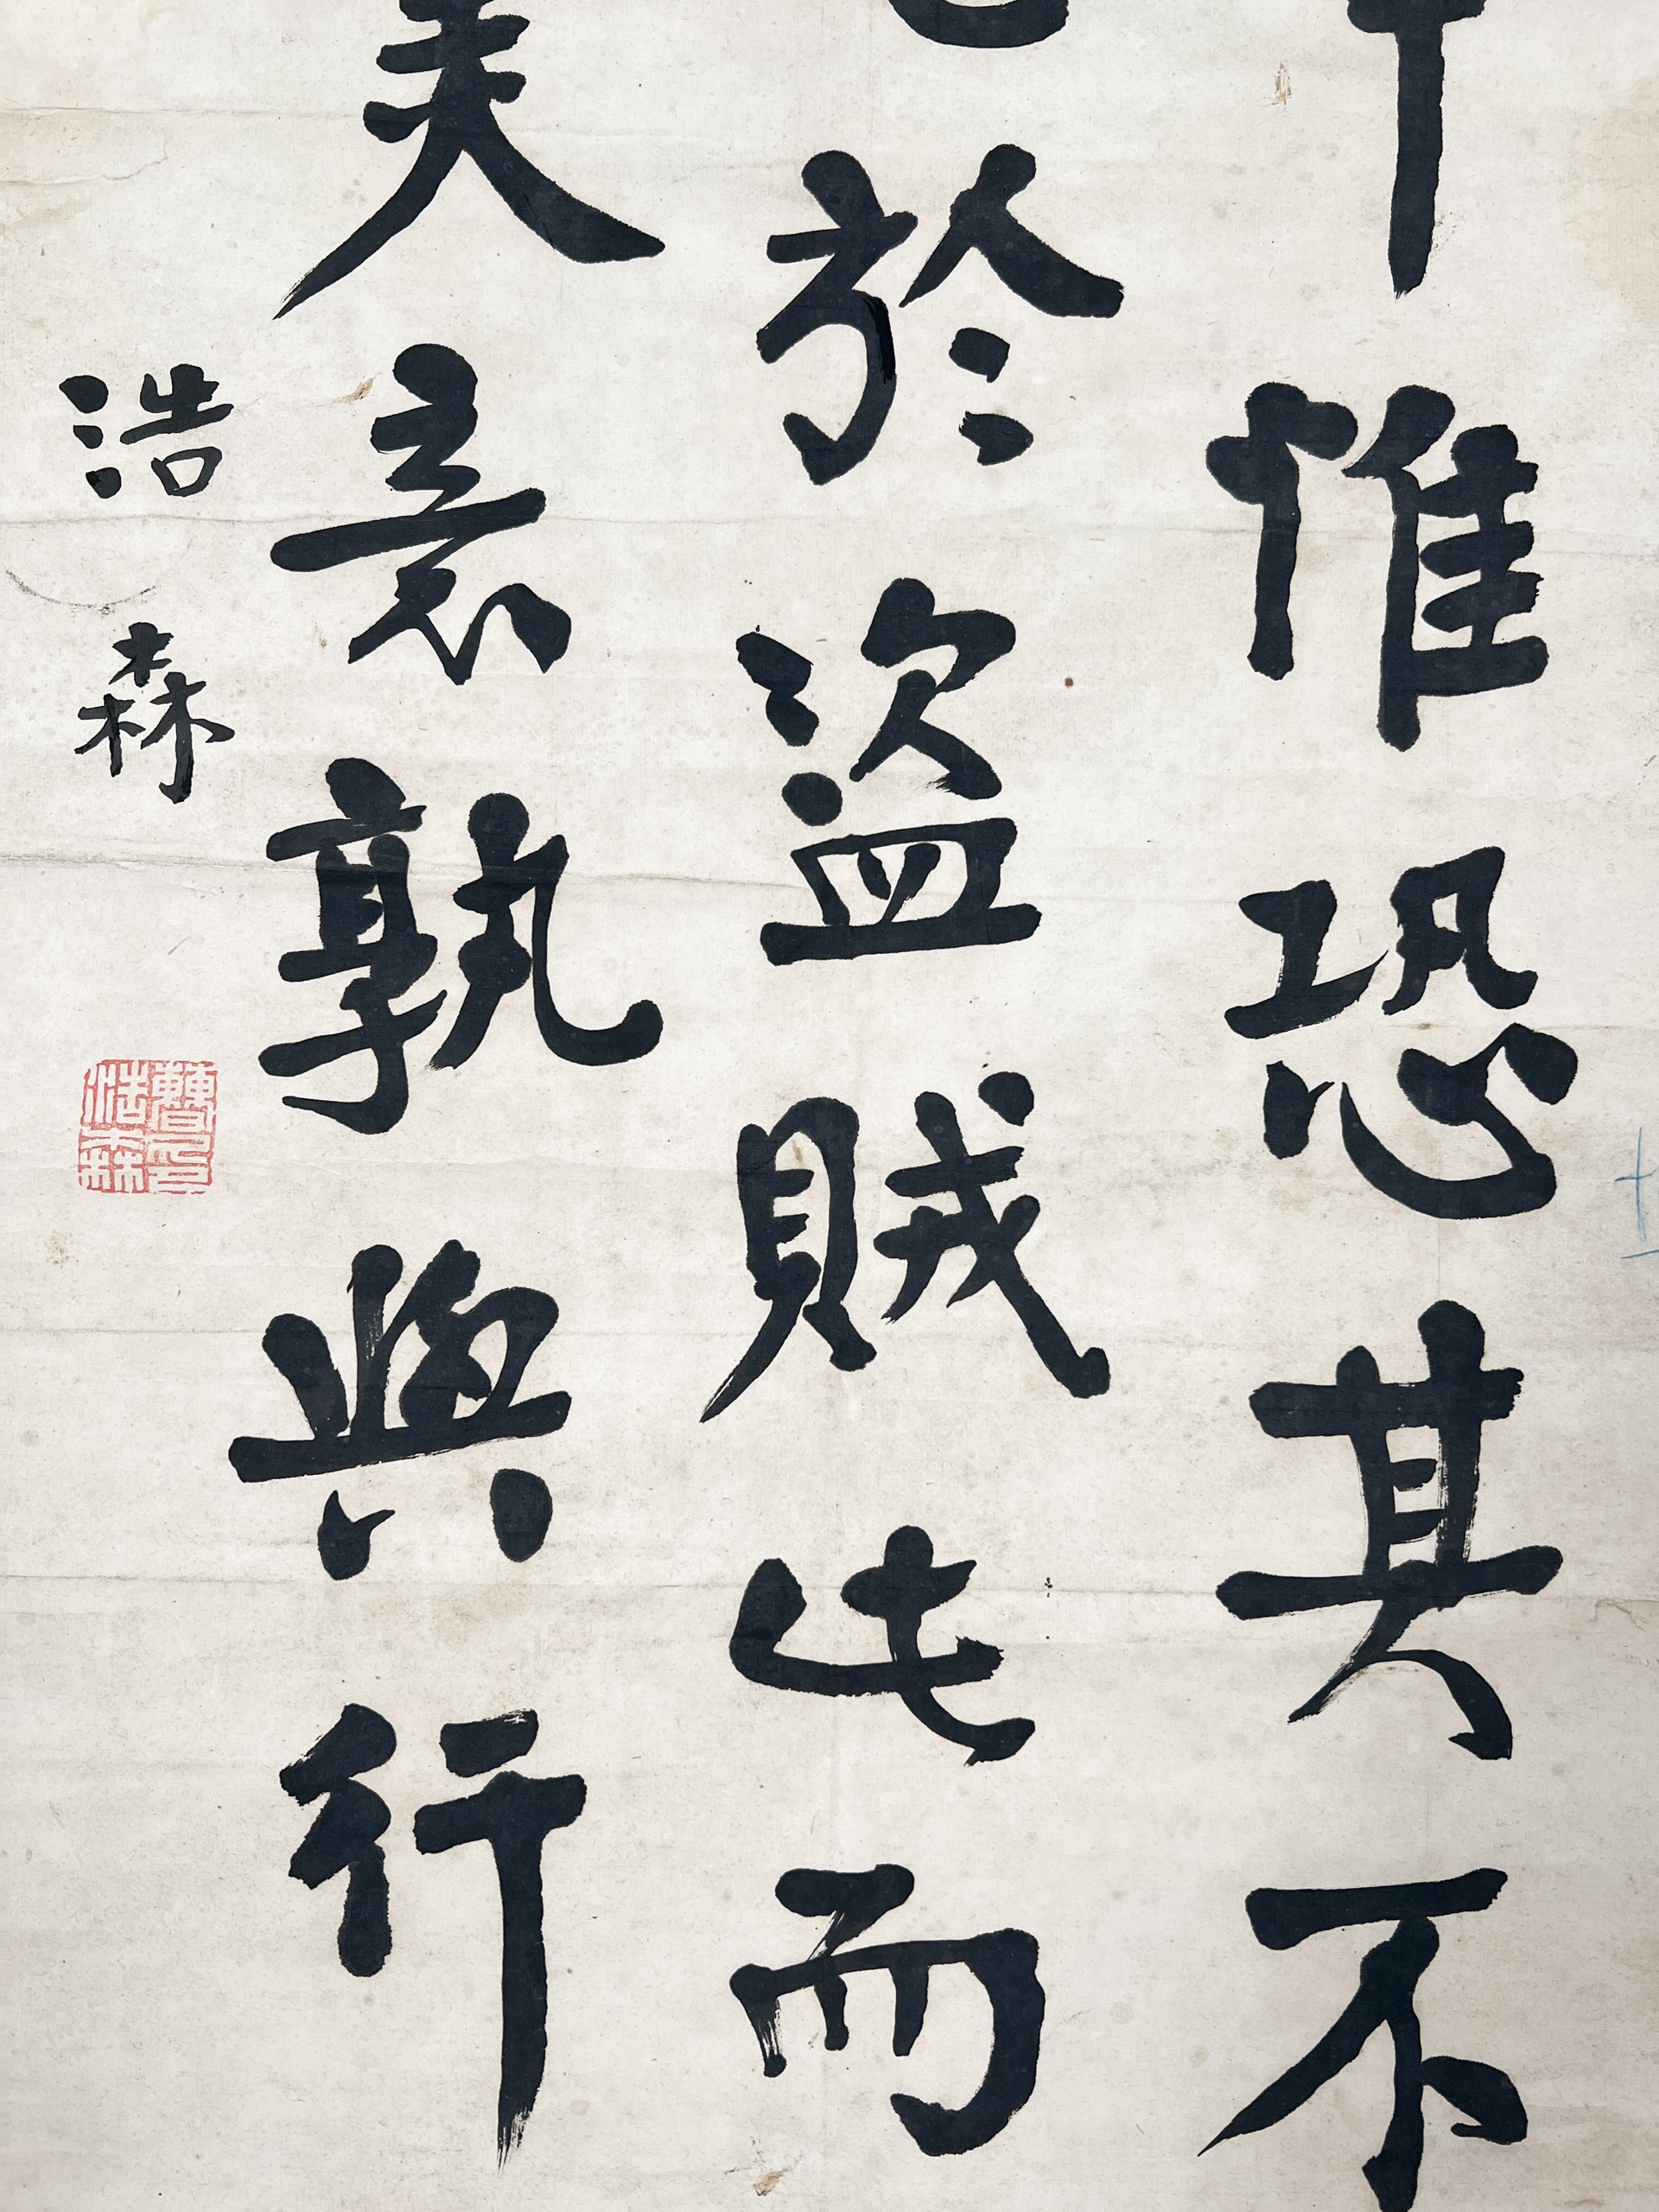 惟恐其不
於盜賊此而
孰與行
浩森
曹印浩森